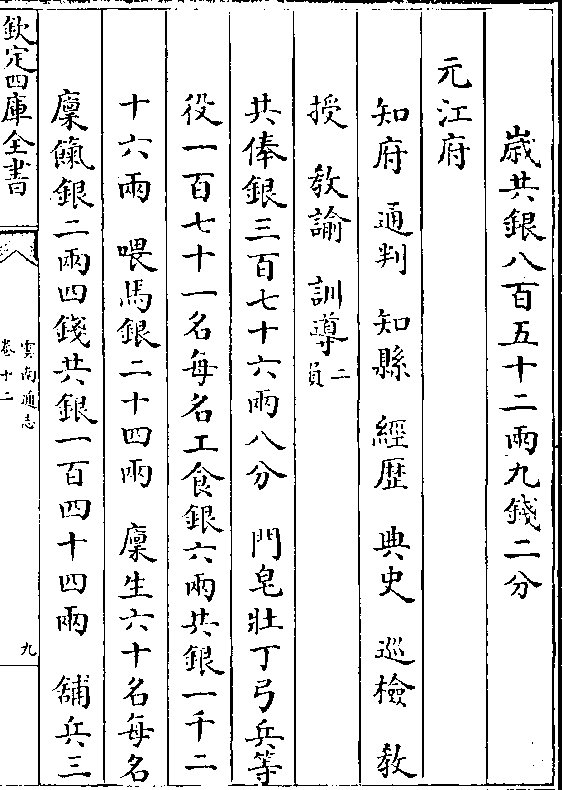 歳共銀八百五十二兩九錢二分
元江府
知府　通判　知縣　經歷　典史　巡檢　教
授　教諭　訓導二員
共俸銀三百七十六兩八分　門皂壯丁弓兵等
役一百七十一名每名工食銀六兩共銀一千二
十六兩　喂馬銀二十四兩　廩生六十名每名
廩餼銀二兩四錢共銀一百四十四兩　舖兵三
欽定四庫全書
雲南通志
卷十二
九